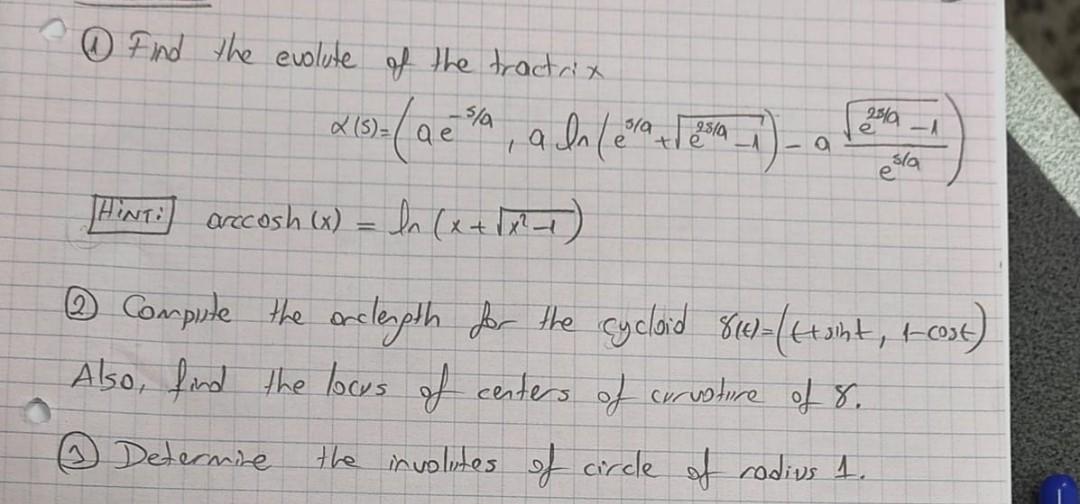 ① Find the evolute of the tractrix
α(s)=(ae^{-s/a}, a ln(e^{s/a}+√(e^{2s/a}-1))-a √(e^{2s/a}-1)/e^{s/a})
HINT: arccosh(x) = ln(x+√(x²-1))
② Compute the arclength for the cycloid γ(t)=(t+sint, 1-cost)
Also, find the locus of centers of curvature of γ.
③ Determine the involutes of circle of radius 1.